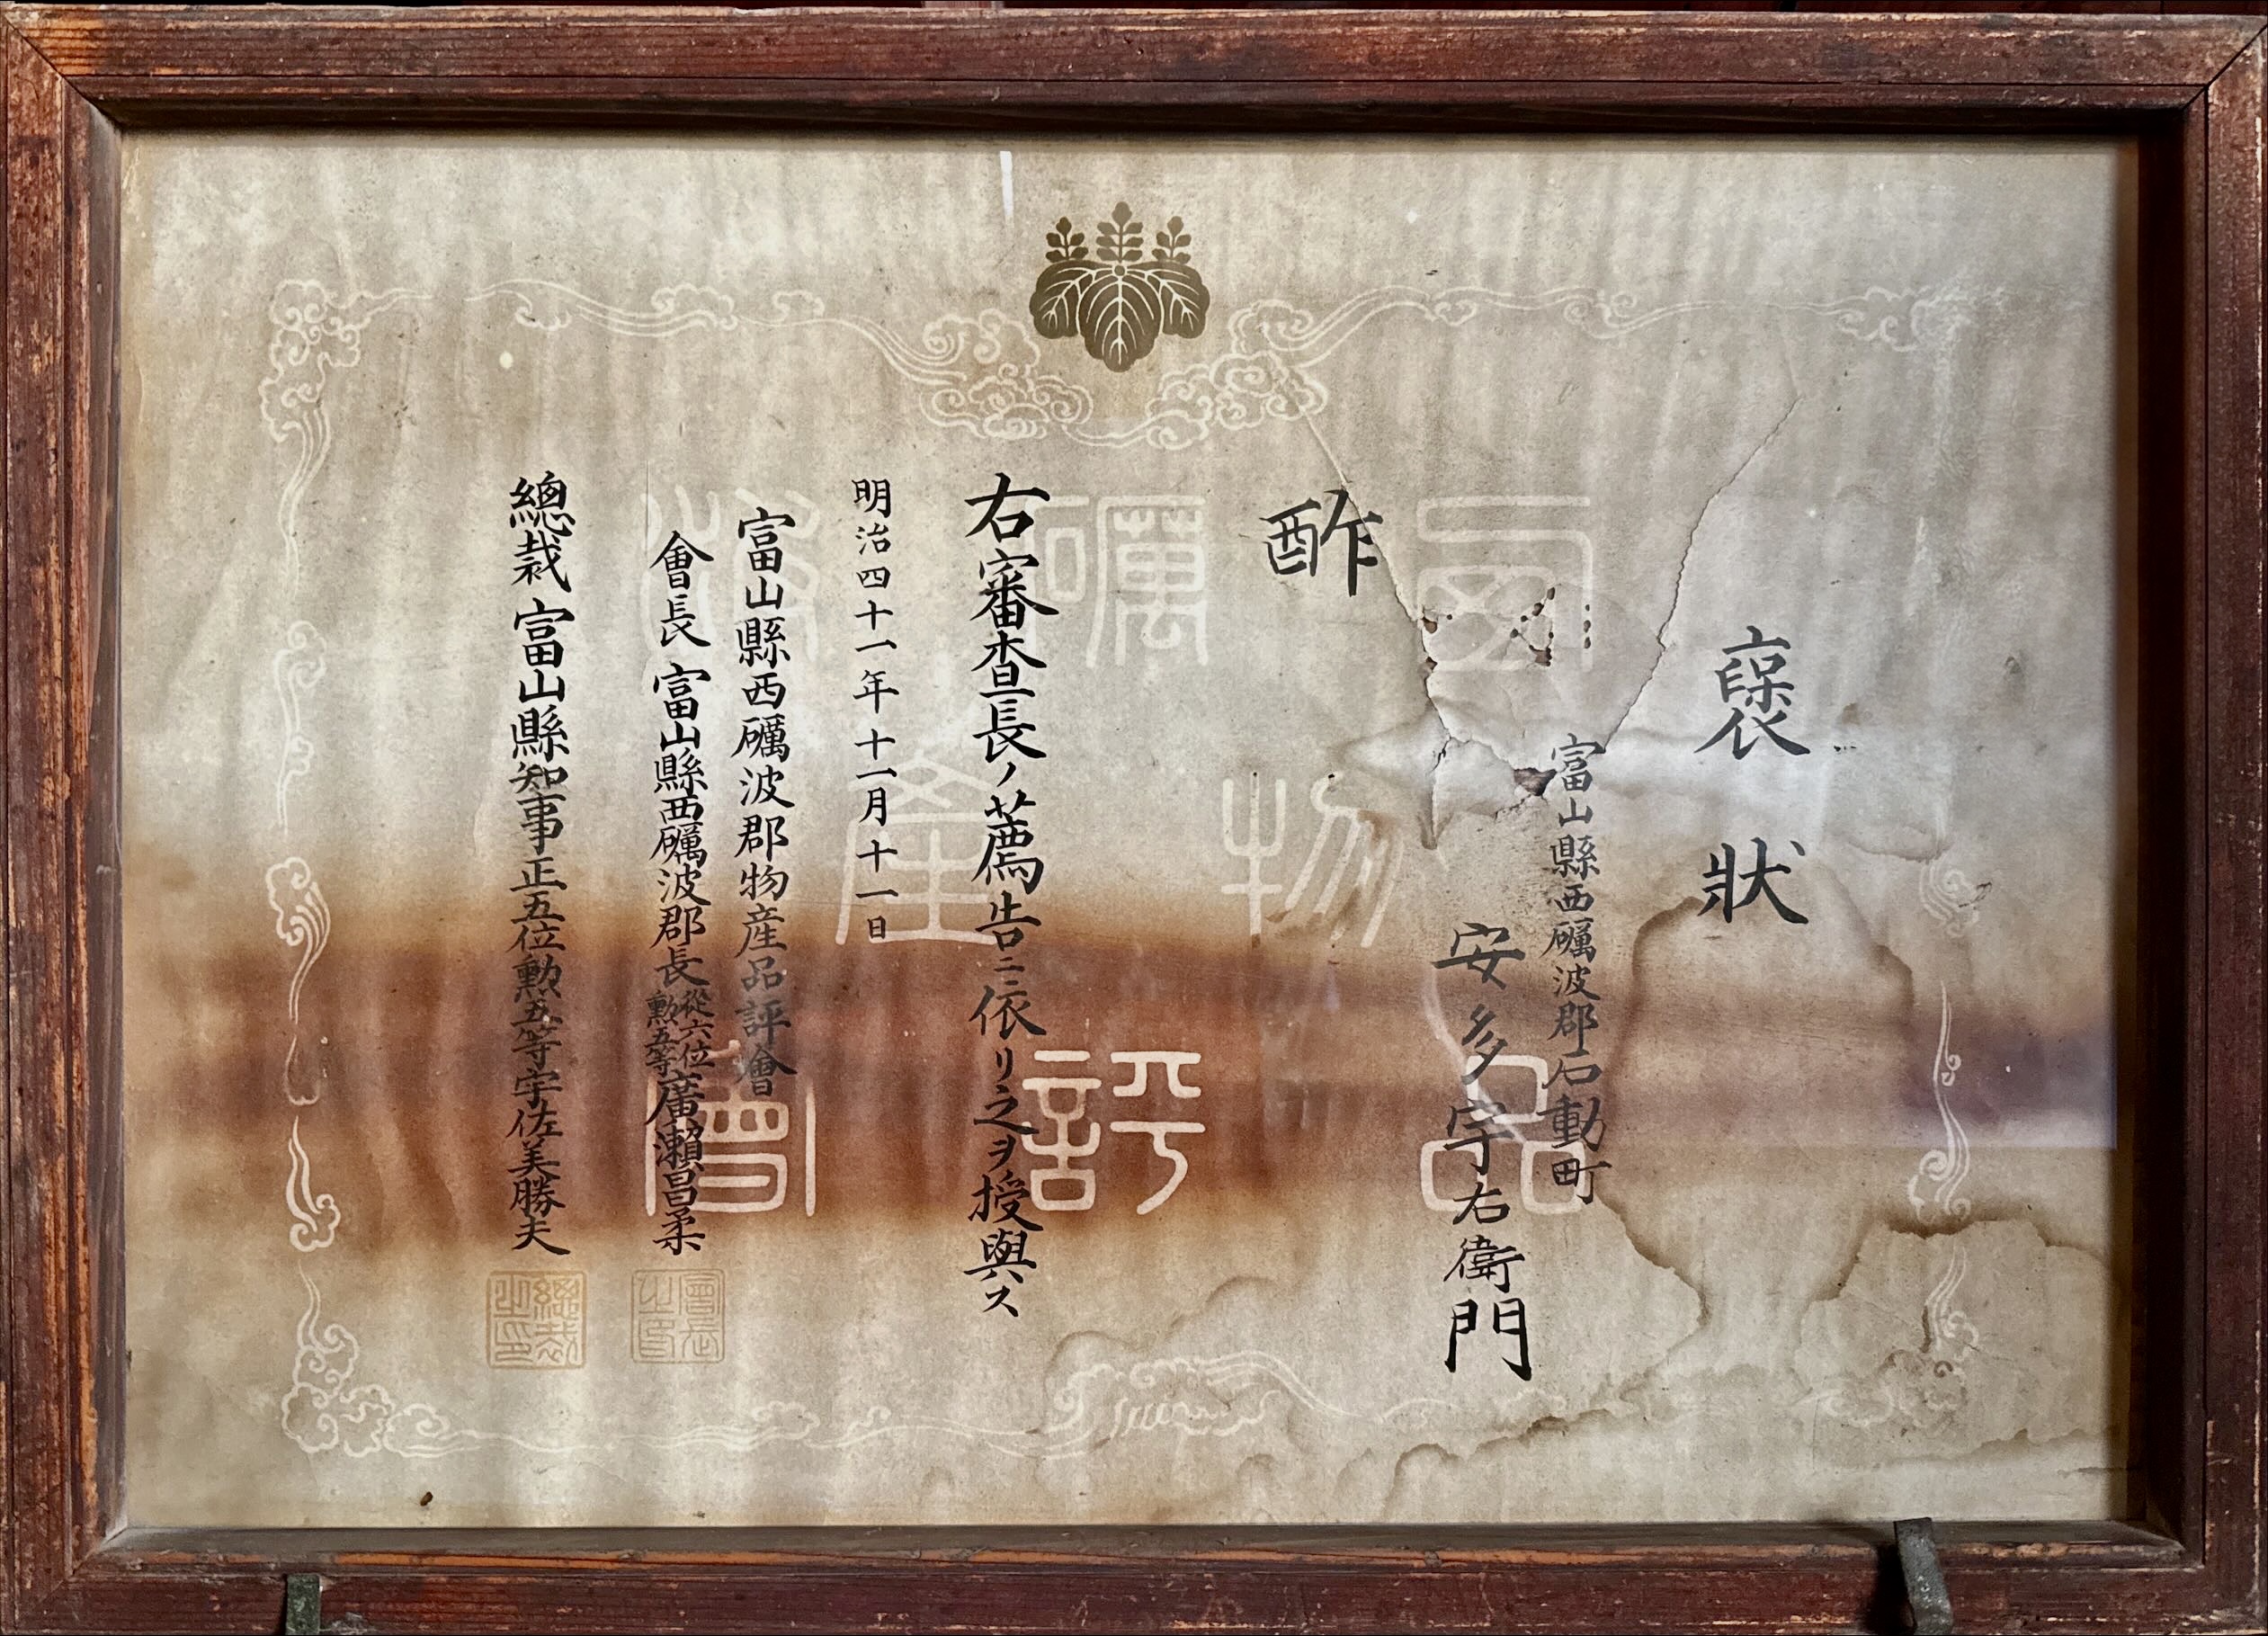 褒狀
富山縣西礪波郡石動町
安多宇右衛門
酢
右審查長ノ薦告ニ依リ之ヲ授與ス
明治四十一年十一月十一日
富山縣西礪波郡物産品評會
會長 富山縣西礪波郡長 從六位 勲五等 廣瀨昌柔
總裁 富山縣知事正五位勲五等宇佐美勝夫
會長之印
總裁之印
西礪波
物産
品評會